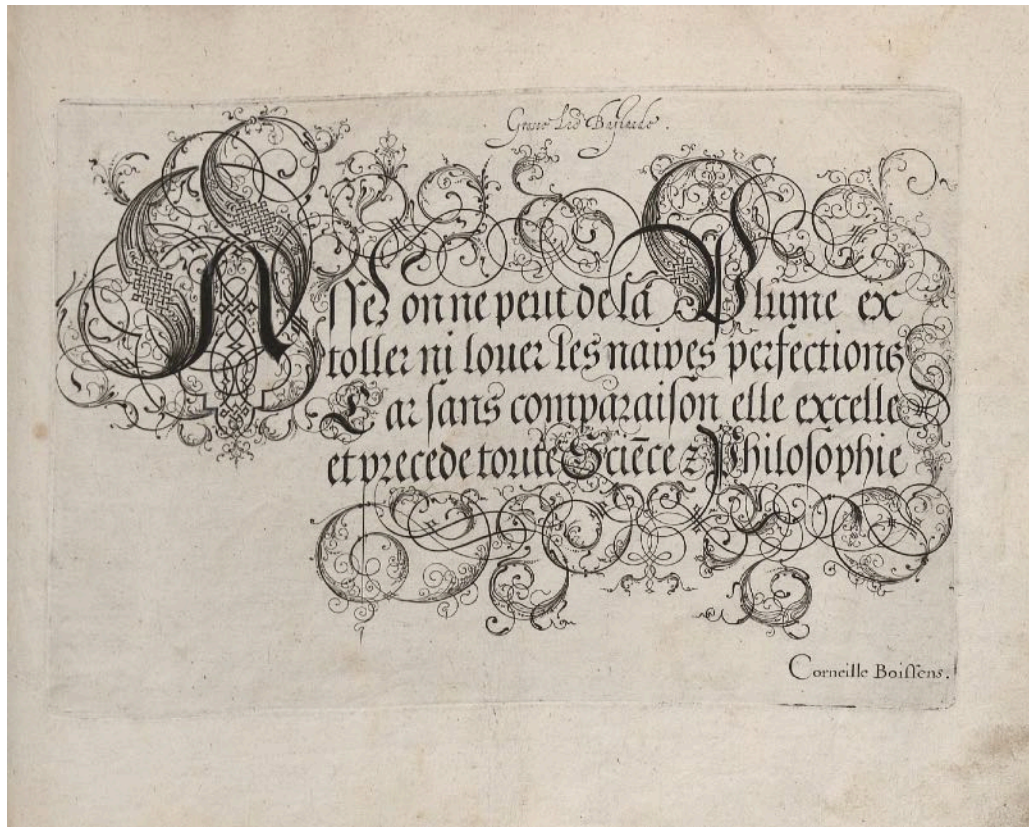 Grosse L̃ed Bastarde.
Assez on ne peut de la Plume ex
toller ni louer les naives perfections
Car sans comparaison elle excelle
et precede toute Sciēce & Philosophie
Corneille Boissens.